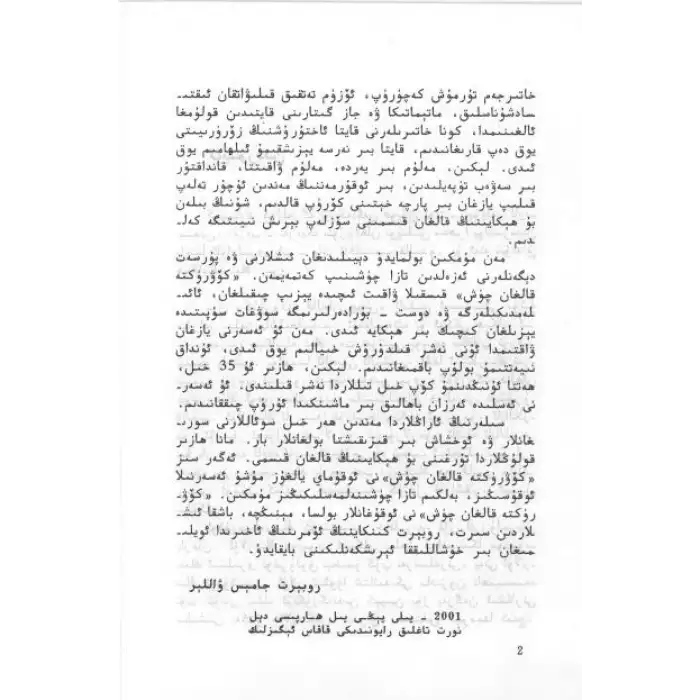 خاتىرجەم تۇرمۇش كەچۈرۈپ، ئۆزۈم تەتقىق قىلىۋاتقان ئىقتى-
سادشۇناسلىق، ماتېماتىكا ۋە جاز گىتارىنى قايتىدىن قولۇمغا
ئالغىنىمدا، كونا خاتىرىلەرنى قايتا ئاختۇرۇشنىڭ زۆرۈرىيىتى
يوق دەپ قارىغانىدىم، قايتا بىر نەرسە يېزىشقىمۇ ئىلھامىم يوق
ئىدى. لېكىن، مەلۇم بىر يەردە، مەلۇم ۋاقىتتا، قانداقتۇر
بىر سەۋەب تۈپەيلىدىن، بىر ئوقۇرمەننىڭ مەندىن ئۇچۇر تەلەپ
قىلىپ يازغان بىر پارچە خېتىنى كۆرۈپ قالدىم، شۇنىڭ بىلەن
بۇ ھېكايىنىڭ قالغان قىسمىنى سۆزلەپ بېرىش نىيىتىگە كەل-
دىم.
مەن مۇمكىن بولمايدۇ دېيىلىدىغان ئىشلارنى ۋە پۇرسەت
دېگەنلەرنى ئەزەلدىن تازا چۈشىنىپ كەتمەيمەن. «كۆۋرۈكتە
قالغان چۈش» قىسقىلا ۋاقىت ئىچىدە يېزىپ چىقىلغان، ئائى-
لەمدىكىلەرگە ۋە دوست - بۇرادەرلىرىمگە سوۋغات سۈپىتىدە
يېزىلغان كىچىك بىر ھېكايە ئىدى. مەن ئۇ ئەسەرنى يازغان
ۋاقتىمدا ئۇنى نەشر قىلدۇرۇش خىيالىم يوق ئىدى، ئۇنداق
نىيەتتىمۇ بولۇپ باقمىغانىدىم. لېكىن، ھازىر ئۇ 35 خىل،
ھەتتا ئۇنىڭدىنمۇ كۆپ خىل تىللاردا نەشر قىلىندى. ئۇ ئەسەر-
نى ئەسلىدە ئەرزان باھالىق بىر ماشىنكىدا ئۇرۇپ چىققانىدىم.
سىلەرنىڭ ئاراڭلاردا مەندىن ھەر خىل سوئاللارنى سورى-
غانلار ۋە ئوخشاش بىر قىزىقىشتا بولغانلار بار. مانا ھازىر
قولۇڭلاردا تۇرغىنى بۇ ھېكايىنىڭ قالغان قىسمى. ئەگەر سىز
«كۆۋرۈكتە قالغان چۈش»نى ئوقۇماي يالغۇز مۇشۇ ئەسەرنىلا
ئوقۇسىڭىز، بەلكىم تازا چۈشىنەلمەسلىكىڭىز مۇمكىن. «كۆۋ-
رۈكتە قالغان چۈش»نى ئوقۇغانلار بولسا، مېنىڭچە، باشقا ئىش-
لاردىن سىرت، روبېرت كىنكاينىڭ ئۆمرىنىڭ ئاخىرىدا ئويلى-
مىغان بىر خۇشاللىققا ئېرىشكەنلىكىنى بايقايدۇ.
روبېرت جامېس ۋاللېر
2001 - يىلى يېڭى يىل ھارپىسى دېل
نورت تاغلىق رايونىدىكى قاقاس ئېگىزلىك
2